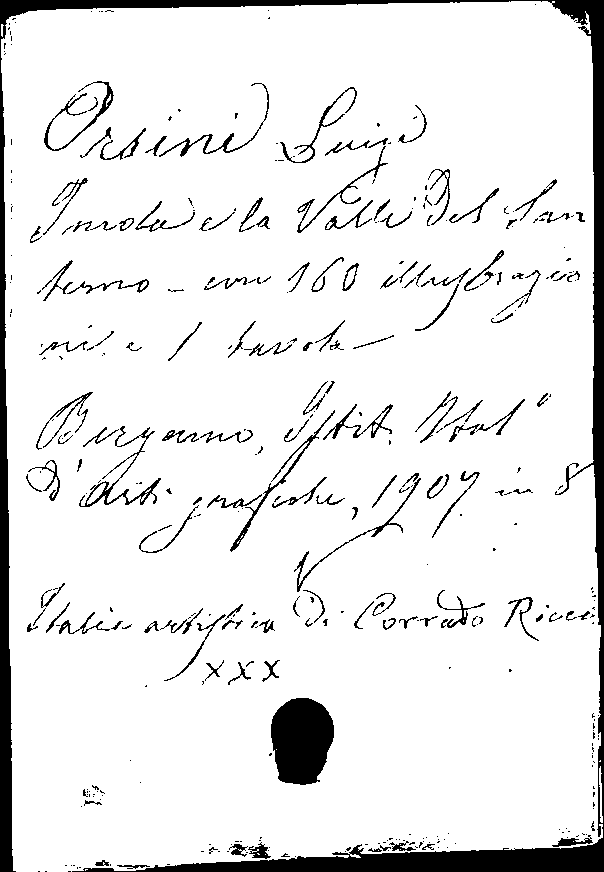 Orsini Luigi
Imola e la Valle del San
terno - con 160 illustrazio
ni e 1 tavola -
Bergamo, Istit. Ital°
d'Arti grafiche, 1907 in 8
Italia artistica di Corrado Ricci
XXX